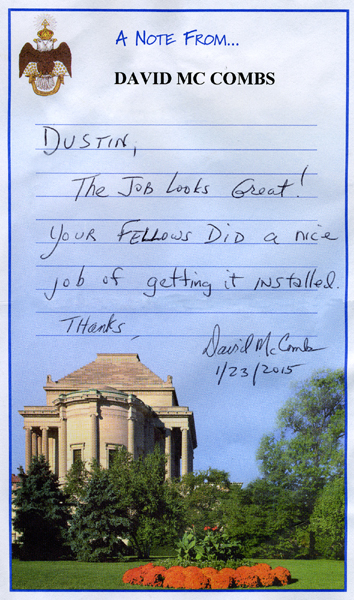 A NOTE FROM...
DAVID MC COMBS
DUSTIN,
The JOB Looks Great!
YOUR FELLOWS DID a nice
job of getting it INSTALLED.
THanks,
David McCombs
1/23/2015